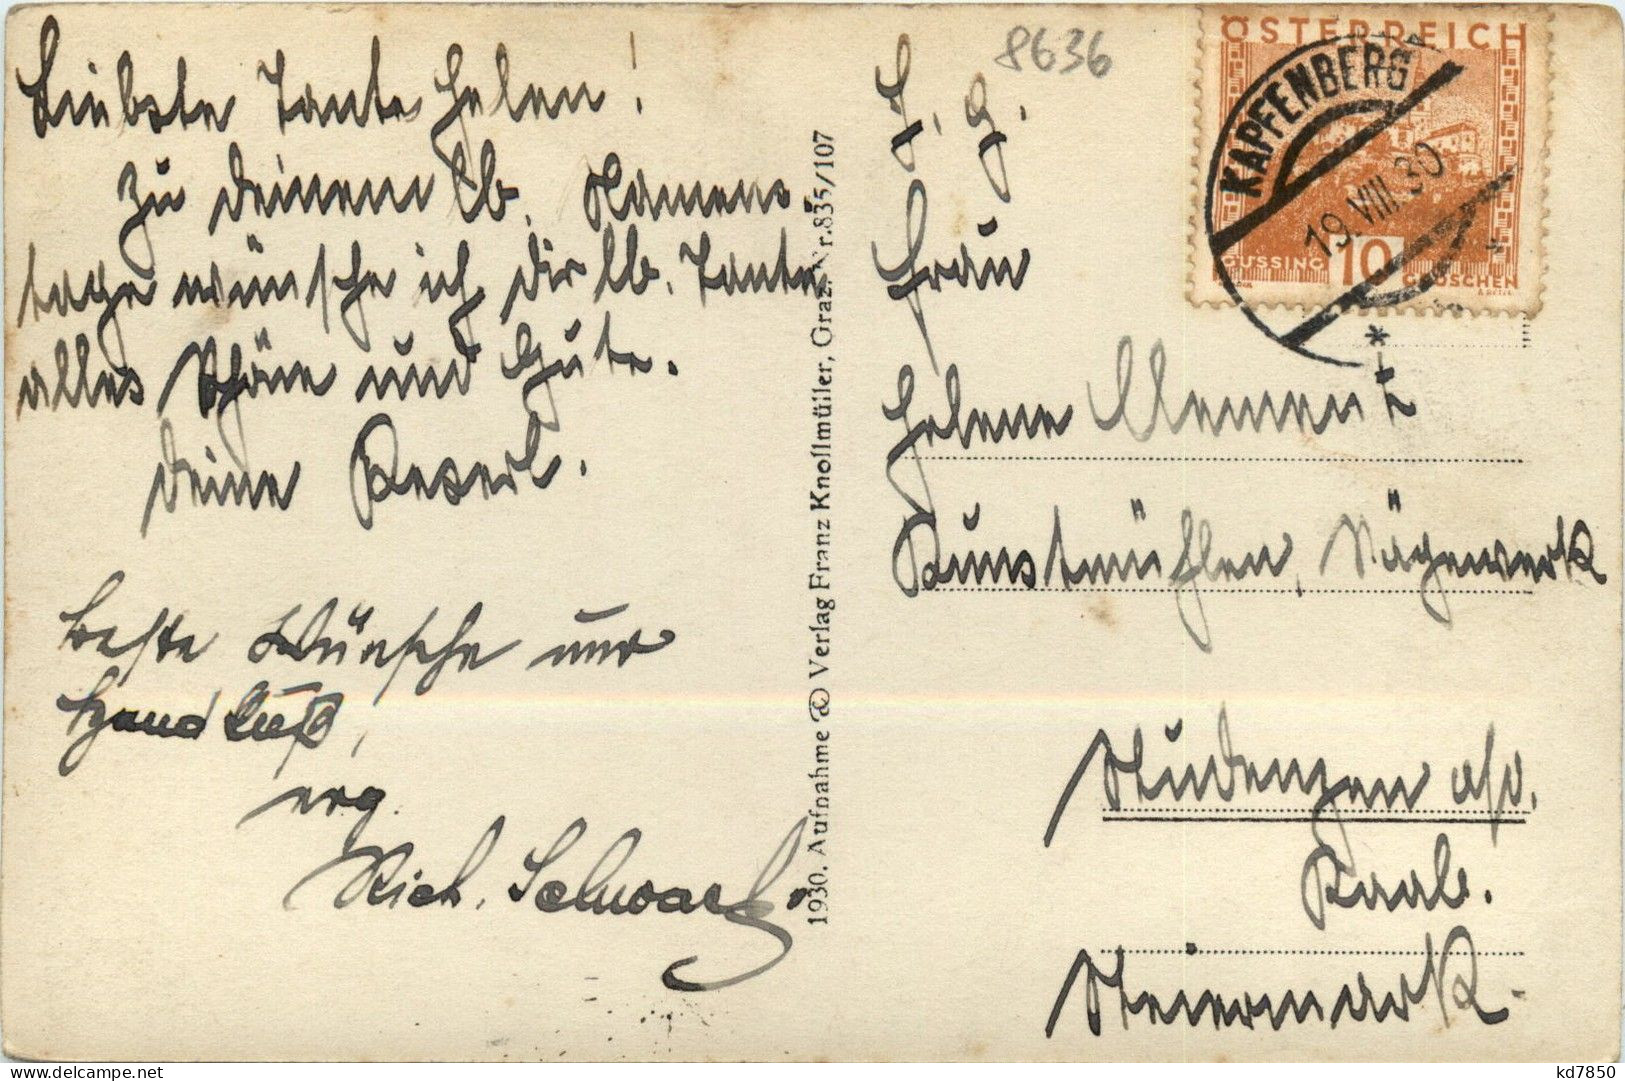 Liebste Tante Helen!
Zu Deinem lb. Namens-
tage wünsche ich Dir lb. Tante
alles Schöne und Gute.
Deine Reserl.
Beste Wünsche und
Handkuß,
erg.
Rich. Schwarz
1930. Aufnahme Verlag Franz Knollmüller, Graz. Nr. 835/107
8636
ÖSTERREICH
KAPFENBERG
19.VIII.30
GÜSSING 10 GROSCHEN
Frau
Helene Clement
Kunstmühlen, Sägewerk
Studenzen a/d.
Raab.
Steiermark.
kd7850